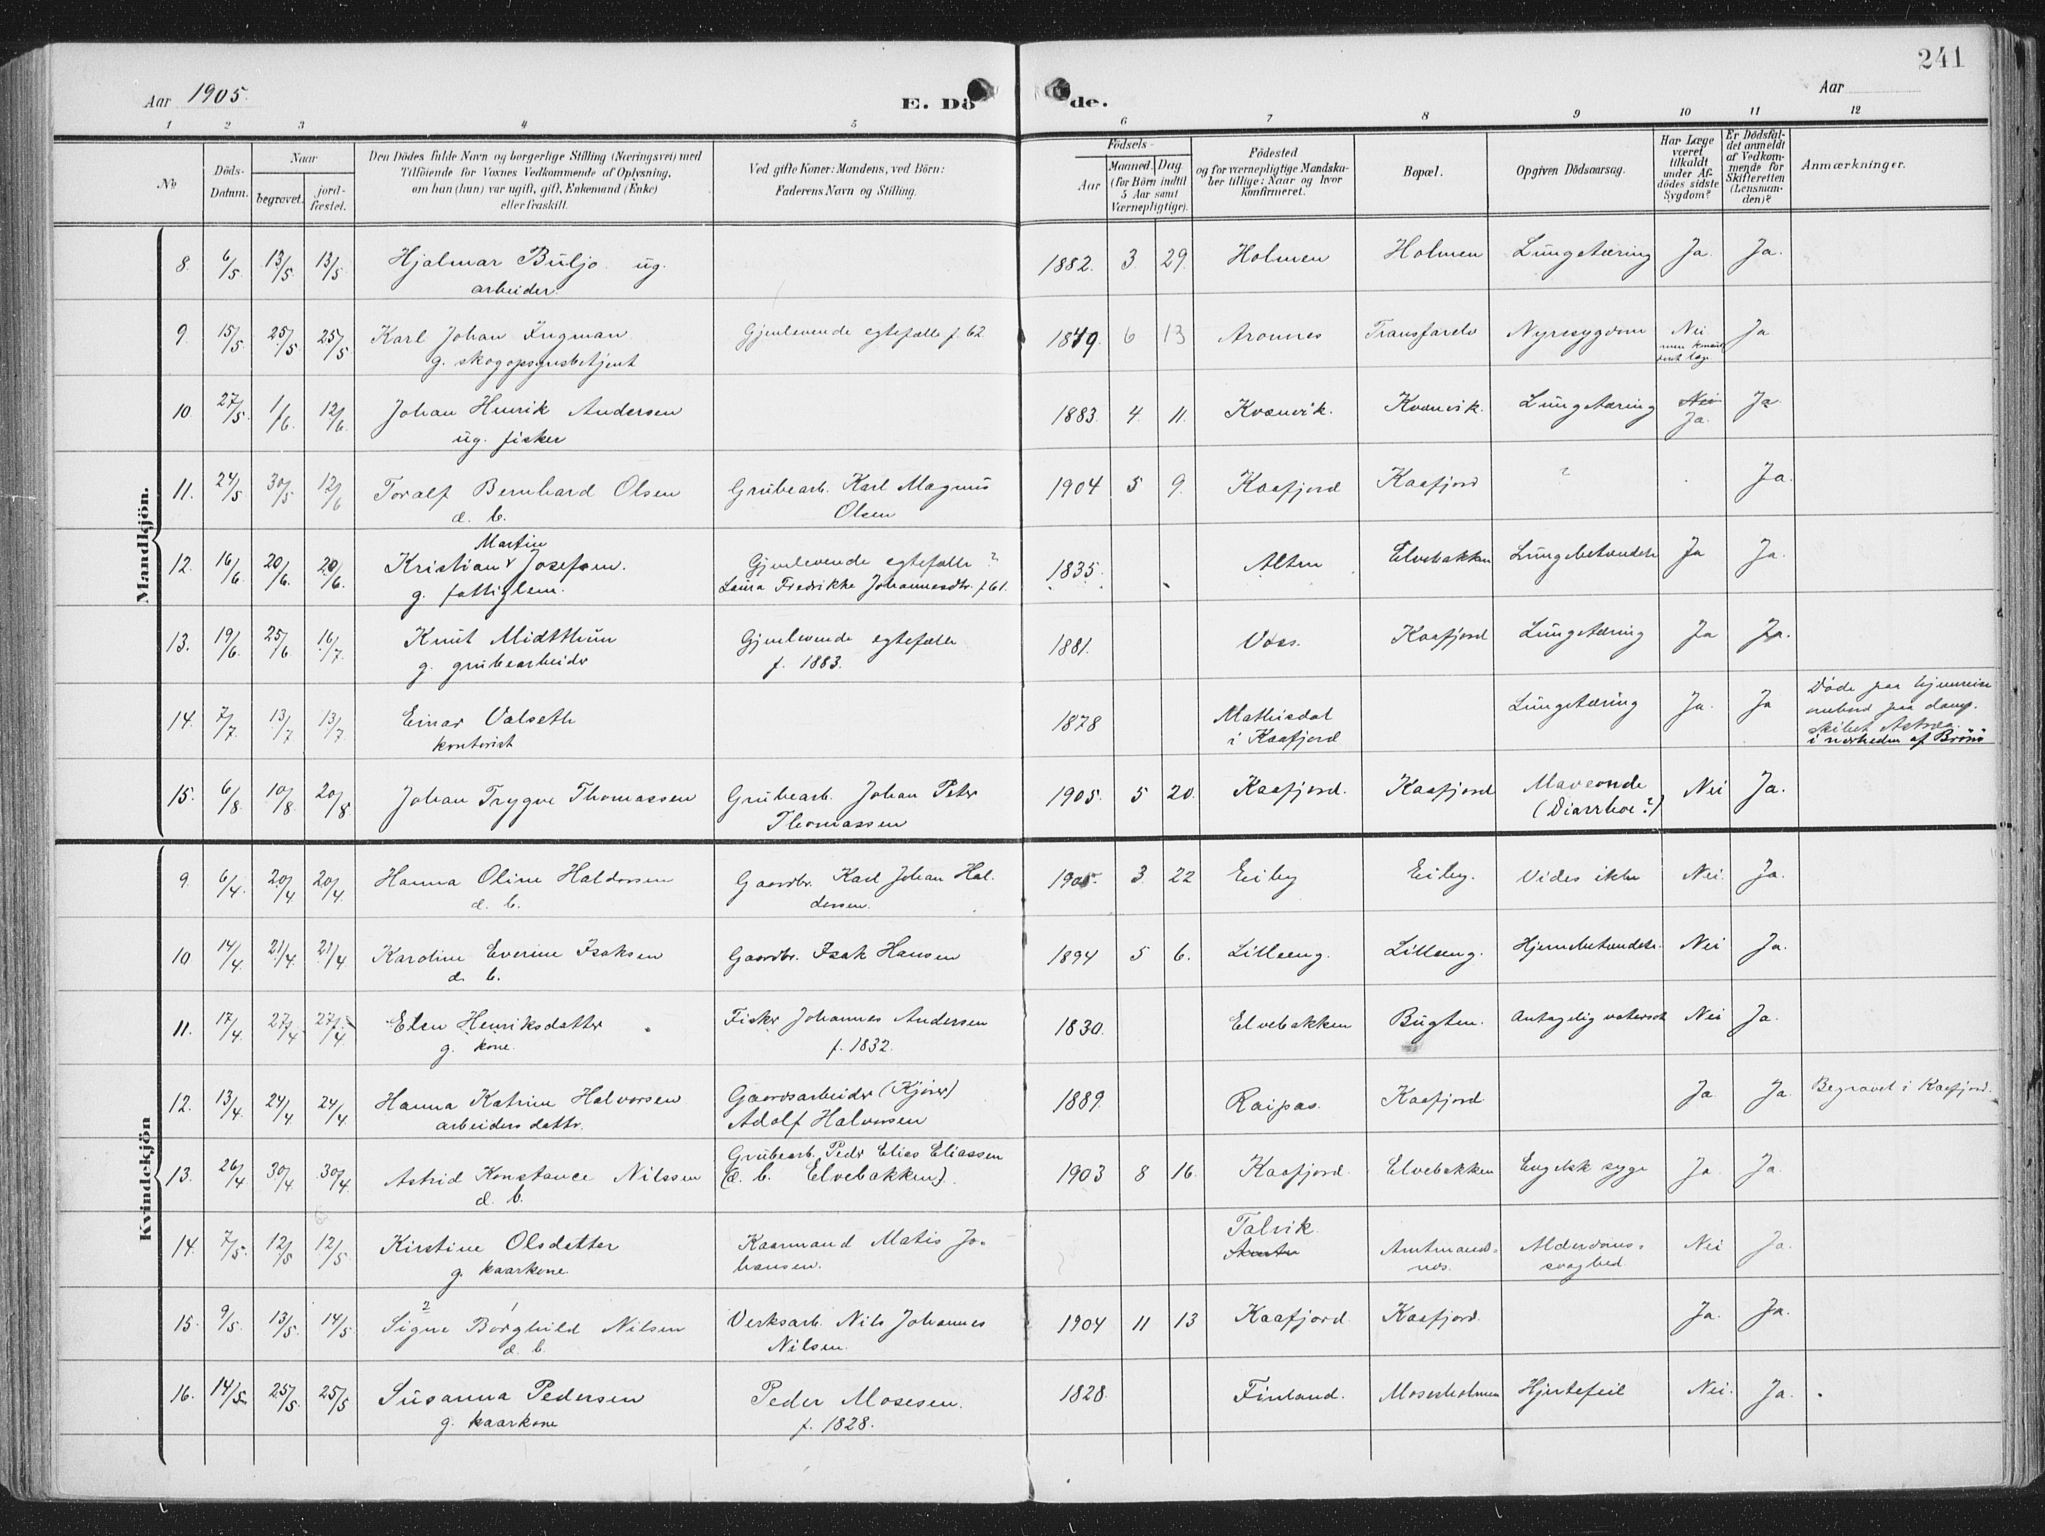 241
Aar 1905.
E. Dö de.
Aar
1 2 3 4 5 6 7 8 9 10 11 12
No
Döds-Datum.
Naar
begravet.
jord-fæstet.
Den Dödes fulde Navn og borgerlige Stilling (Næringsvei) med
Tilföiende for Voxnes Vedkommende af Oplysning,
om han (hun) var ugift, gift, Enkemand (Enke)
eller fraskilt.
Ved gifte Koner: Mandens, ved Börn:
Faderens Navn og Stilling.
Födsels-
Aar
Maaned. Dag
(for Börn indtil
5 Aar samt
Værnepligtige).
Födested
og for værnepligtige Mandska-
ber tillige: Naar og hvor
konfirmeret.
Bopæl.
Opgiven Dödsaarsag.
Har Læge
været
tilkaldt
under Af-
dödes sidste
Sygdom?
Er Dödsfal-
det anmeldt
af Vedkom-
mende for
Skifteretten
(Lensman-
den)?
Anmærkninger.
Mandkjön.
8 6/5 13/5 13/5 Hjalmar Buljo ug. 1882. 3 29. Holmen Holmen Lungetæring Ja. Ja.
arbeider.
9. 15/5 25/5 25/5 Karl Johan Ingman Gjenlevende egtefælle f. 62 1849. 6 13 Aronnes Transfarelv Nyresygdom Nei Ja
g. skogopsynsbetjent
10 27/5 1/6. 12/6. Johan Henrik Andersen 1883. 4. 11. Kvænvik. Kvænvik. Lungetæring Nei Ja
ug. fisker Ja.
11. 24/5 30/5 12/6 Toralf Bernhard Olsen Grubearb. Karl Magnus 1904 5 9. Kaafjord Kaafjord ? Ja.
d. b. Olsen
Martin
12. 16/6. 20/6. 20/6. Kristian Josefsen. Gjenlevende egtefælle ? 1835. Alten Elvebakken Lungebetændelse Ja Ja.
g. fattiglem. Laura Fredrikke Johannesdtr. f 61.
13. 19/6 25/6 16/7. Knut Midtthun Gjenlevende egtefælle 1881. Voss. Kaafjord Lungetæring Ja Ja.
g. grubearbeider f. 1883.
14. 7/7. 13/7 13/7 Einar Valseth 1878 Mathisdal Lungetæring Ja. Ja Døde paa hjemreise
kontorist i Kaafjord ombord paa damp-
skibet Astræa.
i nærheden af Brønø
15. 6/8 10/8. 20/8. Johan Trygve Thomassen Grubearb. Johan Peter 1905. 5 20. Kaafjord. Kaafjord Maveonde Nei Ja.
Thomassen (Diarrhoe?)
Kvindekjön
9. 6/4. 20/4 20/4 Hanna Oline Haldorsen Gaardbr. Karl Johan Hal- 1905. 3. 22 Eiby Eiby. Vides ikke Nei. Ja.
d. b. dorsen.
10 14/4. 21/4. 21/4 Karoline Everine Isaksen Gaardbr. Isak Hansen 1894 5 6. Lilleeng. Lilleeng. Hjernebetændelse. Nei Ja.
d. b.
11. 17/4. 27/4 27/4 Elen Henriksdatter Fisker Johannes Andersen 1830. Elvebakken Bugten. Antagelig vatersot Nei Ja.
g. kone. f. 1832.
12. 13/4. 24/4 24/4. Hanna Katrine Halvorsen Gaardsarbeider (Kjører) 1889. Raipas. Kaafjord Ja Ja. Begravet i Kaafjord.
arbeiders datter. Adolf Halvorsen
Grubearb. Peder Elias Eliassen
13. 26/4 30/4 30/4. Astrid Konstance Nilssen (d. b. Elvebakken). 1903 8 16. Kaafjord. Elvebakken Engelsk syge Ja. Ja.
d. b.
14. 7/5. 12/5 12/5 Kirstine Olsdatter Kaarmand Matis Jo- Talvik. Amtmands- Alderdoms- Nei Ja.
g. kaarkone. hansen. nes. svaghed
2 1
15. 9/5. 13/5. 14/5 Signe Borghild Nilsen Verksarb. Nils Johannes 1904 11 13 Kaafjord Kaafjord. Ja. Ja.
d. b. Nilsen.
16. 14/5. 25/5. 25/5 Susanna Pedersen Peder Mosesen. 1828. Finland. Mosesholmen Hjertefeil Nei. Ja.
g. kaarkone f. 1828.